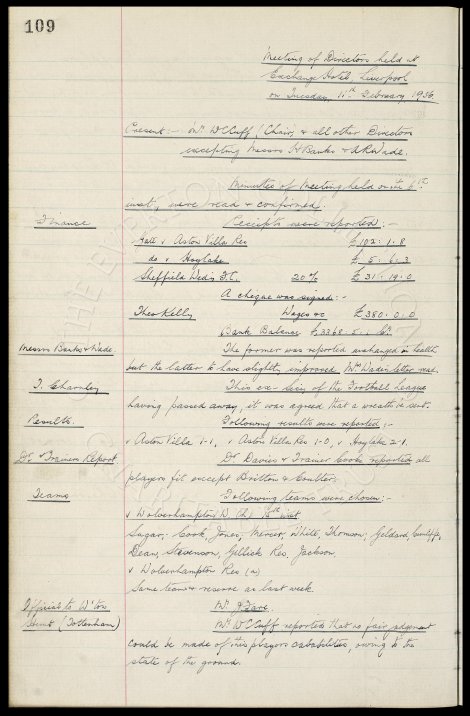 109
Meeting of Directors held at
Exchange Hotel, Liverpool
on Tuesday, 11th February 1936.
Present:- Mr WCCuff (Chair) & all other Directors
excepting Messrs & ARWade.
Minutes of Meeting held on the
inst, were read & confirmed.
Finance Receipts were reported:-
Gate v Aston Villa Res £102. 1. 8
do v Hoylake £ 5. 6. 3
Sheffield Wed's F.C. 20% £ 31. 19. 0
A cheque was signed:-
Theo Kelly Wages &c £380. 0. 0
Bank Balance £3368. 5.
Messrs Banks & Wade. The former was reported unchanged in health
but the latter to have slightly improved. Mr Wade's letter read.
T. Charnley This ex-Secy of the Football League
having passed away, it was agreed that a wreath be sent.
Results. Following results were reported:-
v Aston Villa 1-1, v Aston Villa Res 1-0, v Hoylake 2-1.
Dr & Trainers Report Dr Davies & Trainer Cooke reported all
players fit except Britton & Coulter.
Teams Following teams were chosen:-
v Wolverhampton W (h) 15th inst
Sagar; Cook, Jones; Mercer, White, Thomson; Geldard, Cunliffe,
Dean, Stevenson, Gillick Res. Jackson
v Wolverhampton Res (a)
Same team & reserve as last week.
Officials to W'ton
(Tottenham) Mr
Mr WCCuff reported that no fair judgement
could be made of this players capabilities, owing to the
state of the ground.